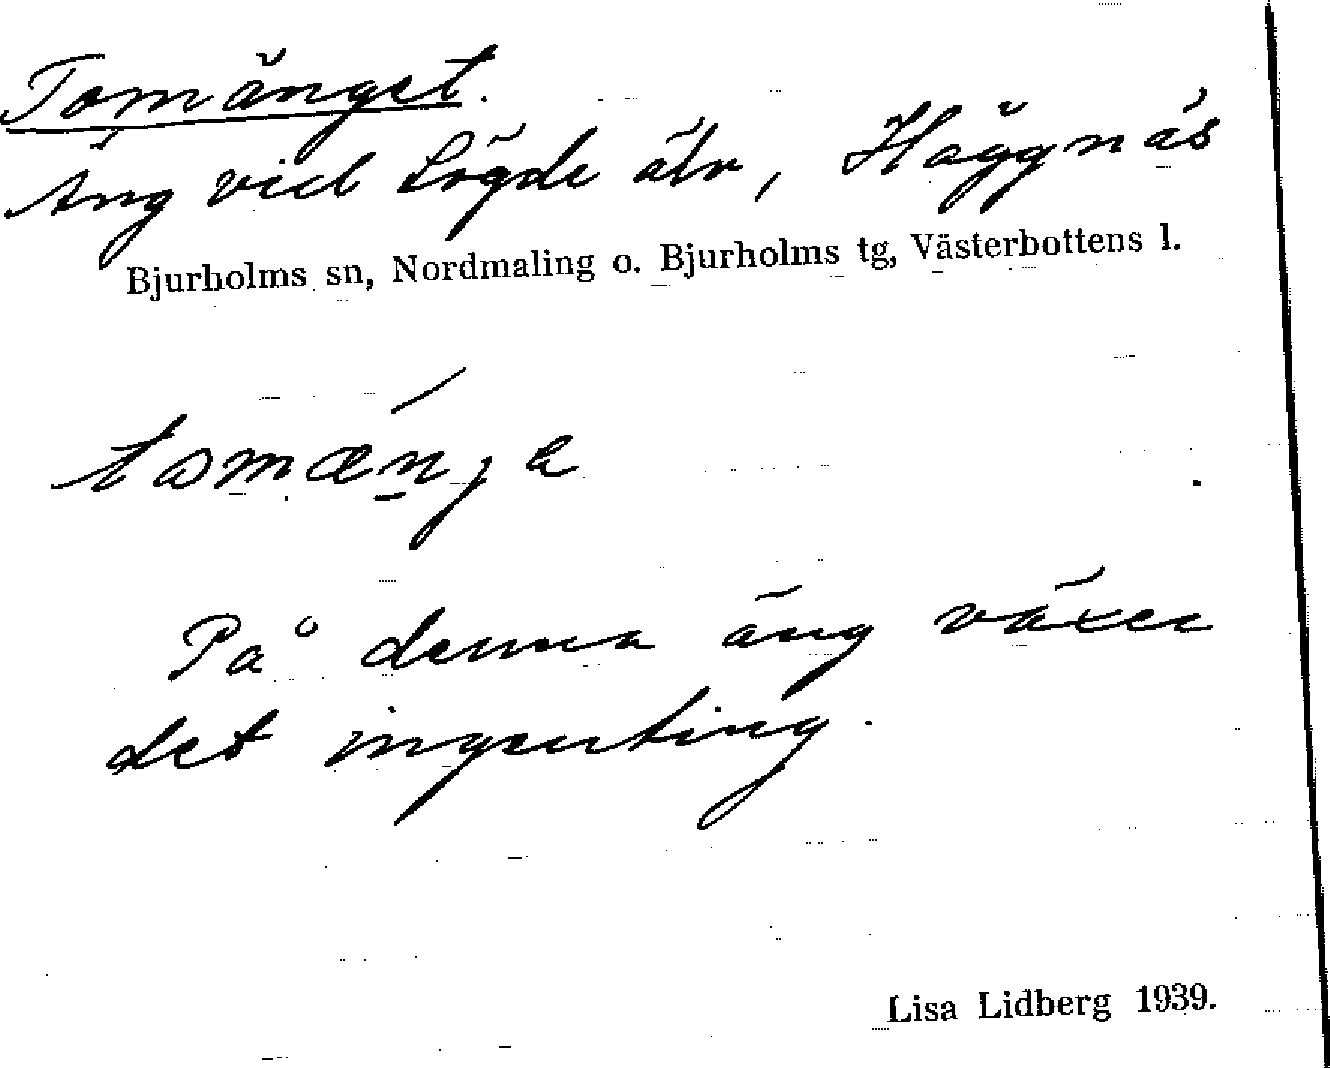 Tomänget.
Äng vid Lögde älv, Häggnäs
Bjurholms sn, Nordmaling o. Bjurholms tg, Västerbottens l.
På denna äng växer
det ingenting.
Lisa Lidberg 1939.